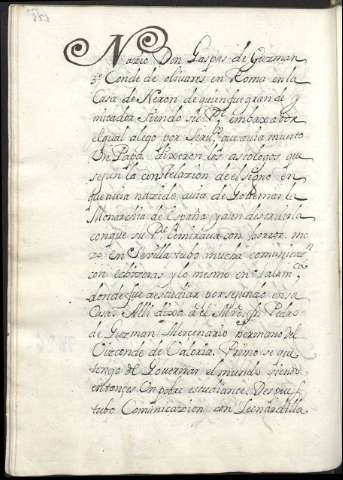 Nazio Don Gaspar de Guzman
3º Conde de olibares en Roma en la
Casa de Neron de quien fue gran de y
mitador siendo su Pe. embaxador
el qual alego por
Un Papa, dixeron los astologos que
segun la constelazion del signo en
que auia nazido, auia de Gobernar la
Monarchia de España y aun destruirla
conque su Pe. le miraua con horror, mo
zo en Sevilla tubo mucha comunicazn.
con echizeras y lo mesmo en salam.ca
donde fue a estudiar por segundo en su
Casa, Alli dixo a el Mro. fr. Pedro
de Guzman Mercenario hermano del
Vizconde de Valoria, Primo se que
tengo de Governar el mundo siendo
entonces Un pobre estudiante, Despues
tubo Comunicazion con Leonardilla